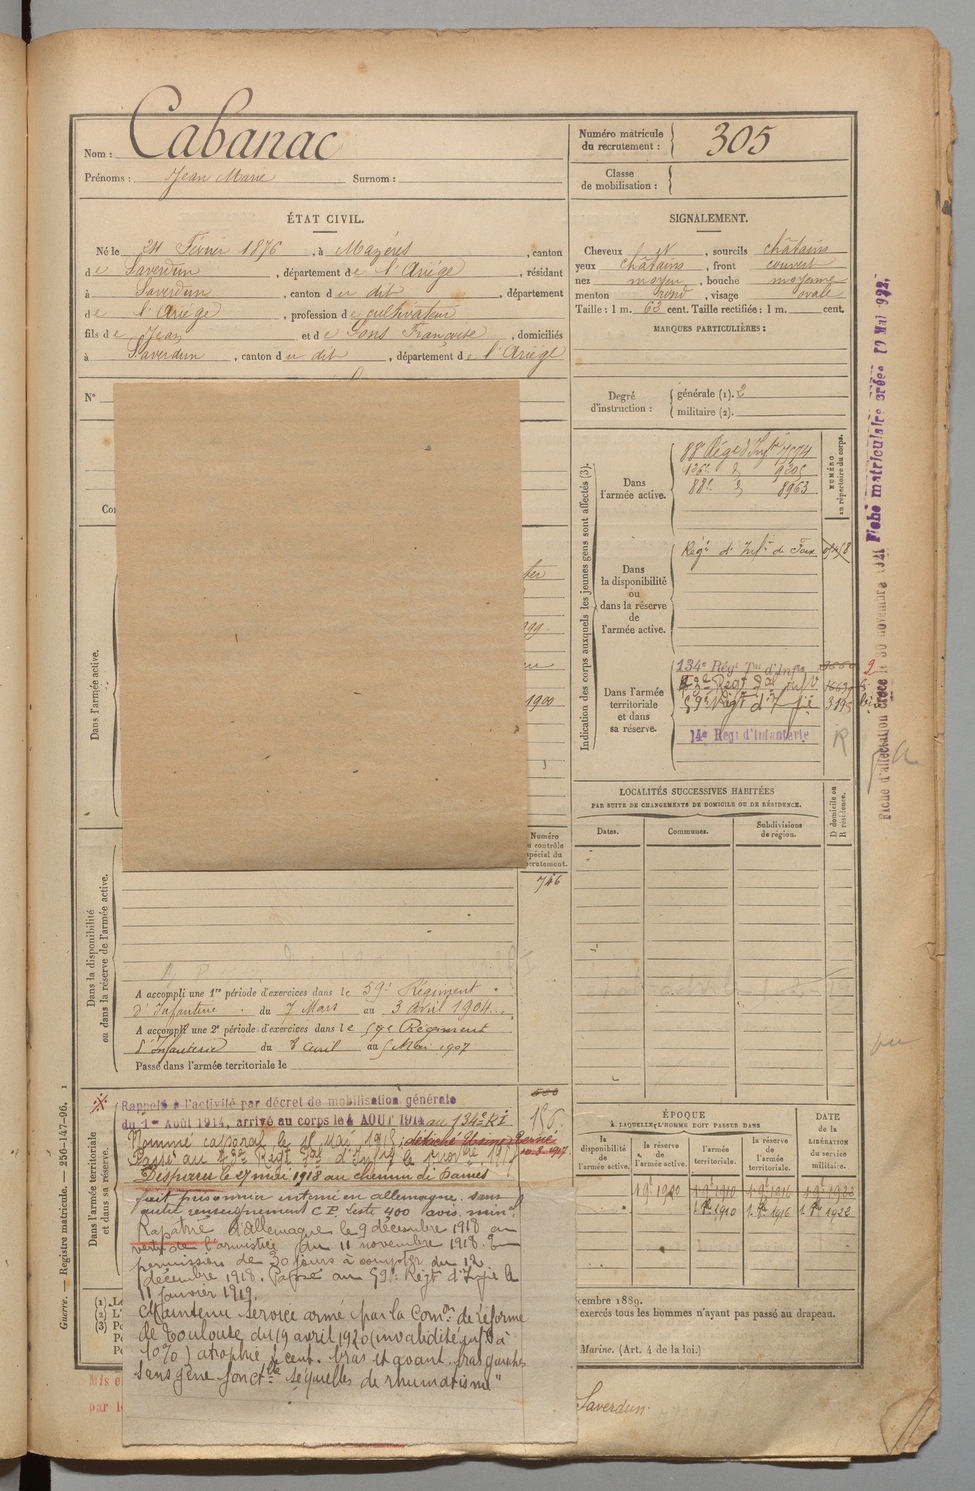 Nom : Cabanac
Prénoms : Jean Marie Surnom :
Numéro matricule
du recrutement : 305
Classe
de mobilisation :
ÉTAT CIVIL.
Né le 24 Février 1876, à Mazères, canton
de Saverdun, département de l'Ariège, résidant
à Saverdun, canton du dit, département
de l'Ariège, profession de cultivateur
fils de Jean et de Pons Françoise, domiciliés
à Saverdun, canton du dit, département de l'Ariège
N°
SIGNALEMENT.
Cheveux , sourcils châtains
yeux châtains, front couvert
nez moyen, bouche moyenne
menton rond, visage ovale
Taille : 1 m. 63 cent. Taille rectifiée : 1 m. cent.
MARQUES PARTICULIÈRES :
Degré
d'instruction :
générale (1). 2
militaire (2).
Indication des corps auxquels les jeunes gens sont affectés (3).
NUMÉRO
au répertoire du corps.
Dans
l'armée active.
88e Régt d'Infie 7774
126e d
88e d 8963
Dans
la disponibilité
ou
dans la réserve
de
l'armée active.
Regt d'Infie de Foix
Dans l'armée
territoriale
et dans
sa réserve.
134e Régt Tal d'Infie
59e Régt d'Infie
14e Régt d'Infanterie
R
Fiche matriculaire créée 19 Mai 1922
Fiche d'affectation créée le novembre 1921
LOCALITÉS SUCCESSIVES HABITÉES
PAR SUITE DE CHANGEMENTS DE DOMICILE OU DE RÉSIDENCE.
Dates. Communes. Subdivisions
de région.
D domicile ou
R résidence.
Dans l'armée active.
1900
Numéro
contrôle
spécial du
recrutement.
746
Dans la disponibilité
ou dans la réserve de l'armée active.
A accompli une 1re période d'exercices dans le 59e Régiment
d'Infanterie du 7 Mars au 3 avril 1904
A accompli une 2e période d'exercices dans le 59e Régiment
d'Infanterie du 8 avril au 5 Mai 1907
Passé dans l'armée territoriale le
Dans l'armée territoriale
et dans sa réserve.
Rappelé à l'activité par décret de mobilisation générale
du 1er Août 1914, arrivé au corps le 4 AOUT 1914 au 134e RI
Nommé caporal le 18 Mai 1915, détaché Usine
Disparu le 27 mai 1918 au chemin de Dames
fait prisonnier interné en allemagne. sans
autre renseignement C.P. Liste 400 avis. min.
Rapatrié d'allemagne le 9 décembre 1918 en
vertu de l'armistice du 11 novembre 1918.
permission de 30 jours à compter du 12
décembre 1918. Passé au 59e Régt d'Infie le
11 janvier 1919.
Maintenu service armé par la Comon de réforme
de Toulouse du 19 avril 1920 (invalidité infre à
10%) atrophie 1 cent. bras et avant bras gauches
sans gêne fonctlle séquelles de rhumatisme"
ÉPOQUE
À LAQUELLE L'HOMME DOIT PASSER DANS
la
disponibilité
de
l'armée active.
la réserve
de
l'armée active.
l'armée
territoriale.
la réserve
de
l'armée
territoriale.
DATE
de la
LIBÉRATION
du
service
militaire.
1 9bre 1900 1 9bre 1910 1 9bre 1916 1 9bre 1922
1 8bre 1910 1 8bre 1916 1 8bre 1922
(1)
(2)
(3)
cembre 1889.
exercés tous les hommes n'ayant pas passé au drapeau.
Marine. (Art. 4 de la loi.)
Saverdun
Guerre. — Registre matricule. — 256-147-96.
Mis e
par l